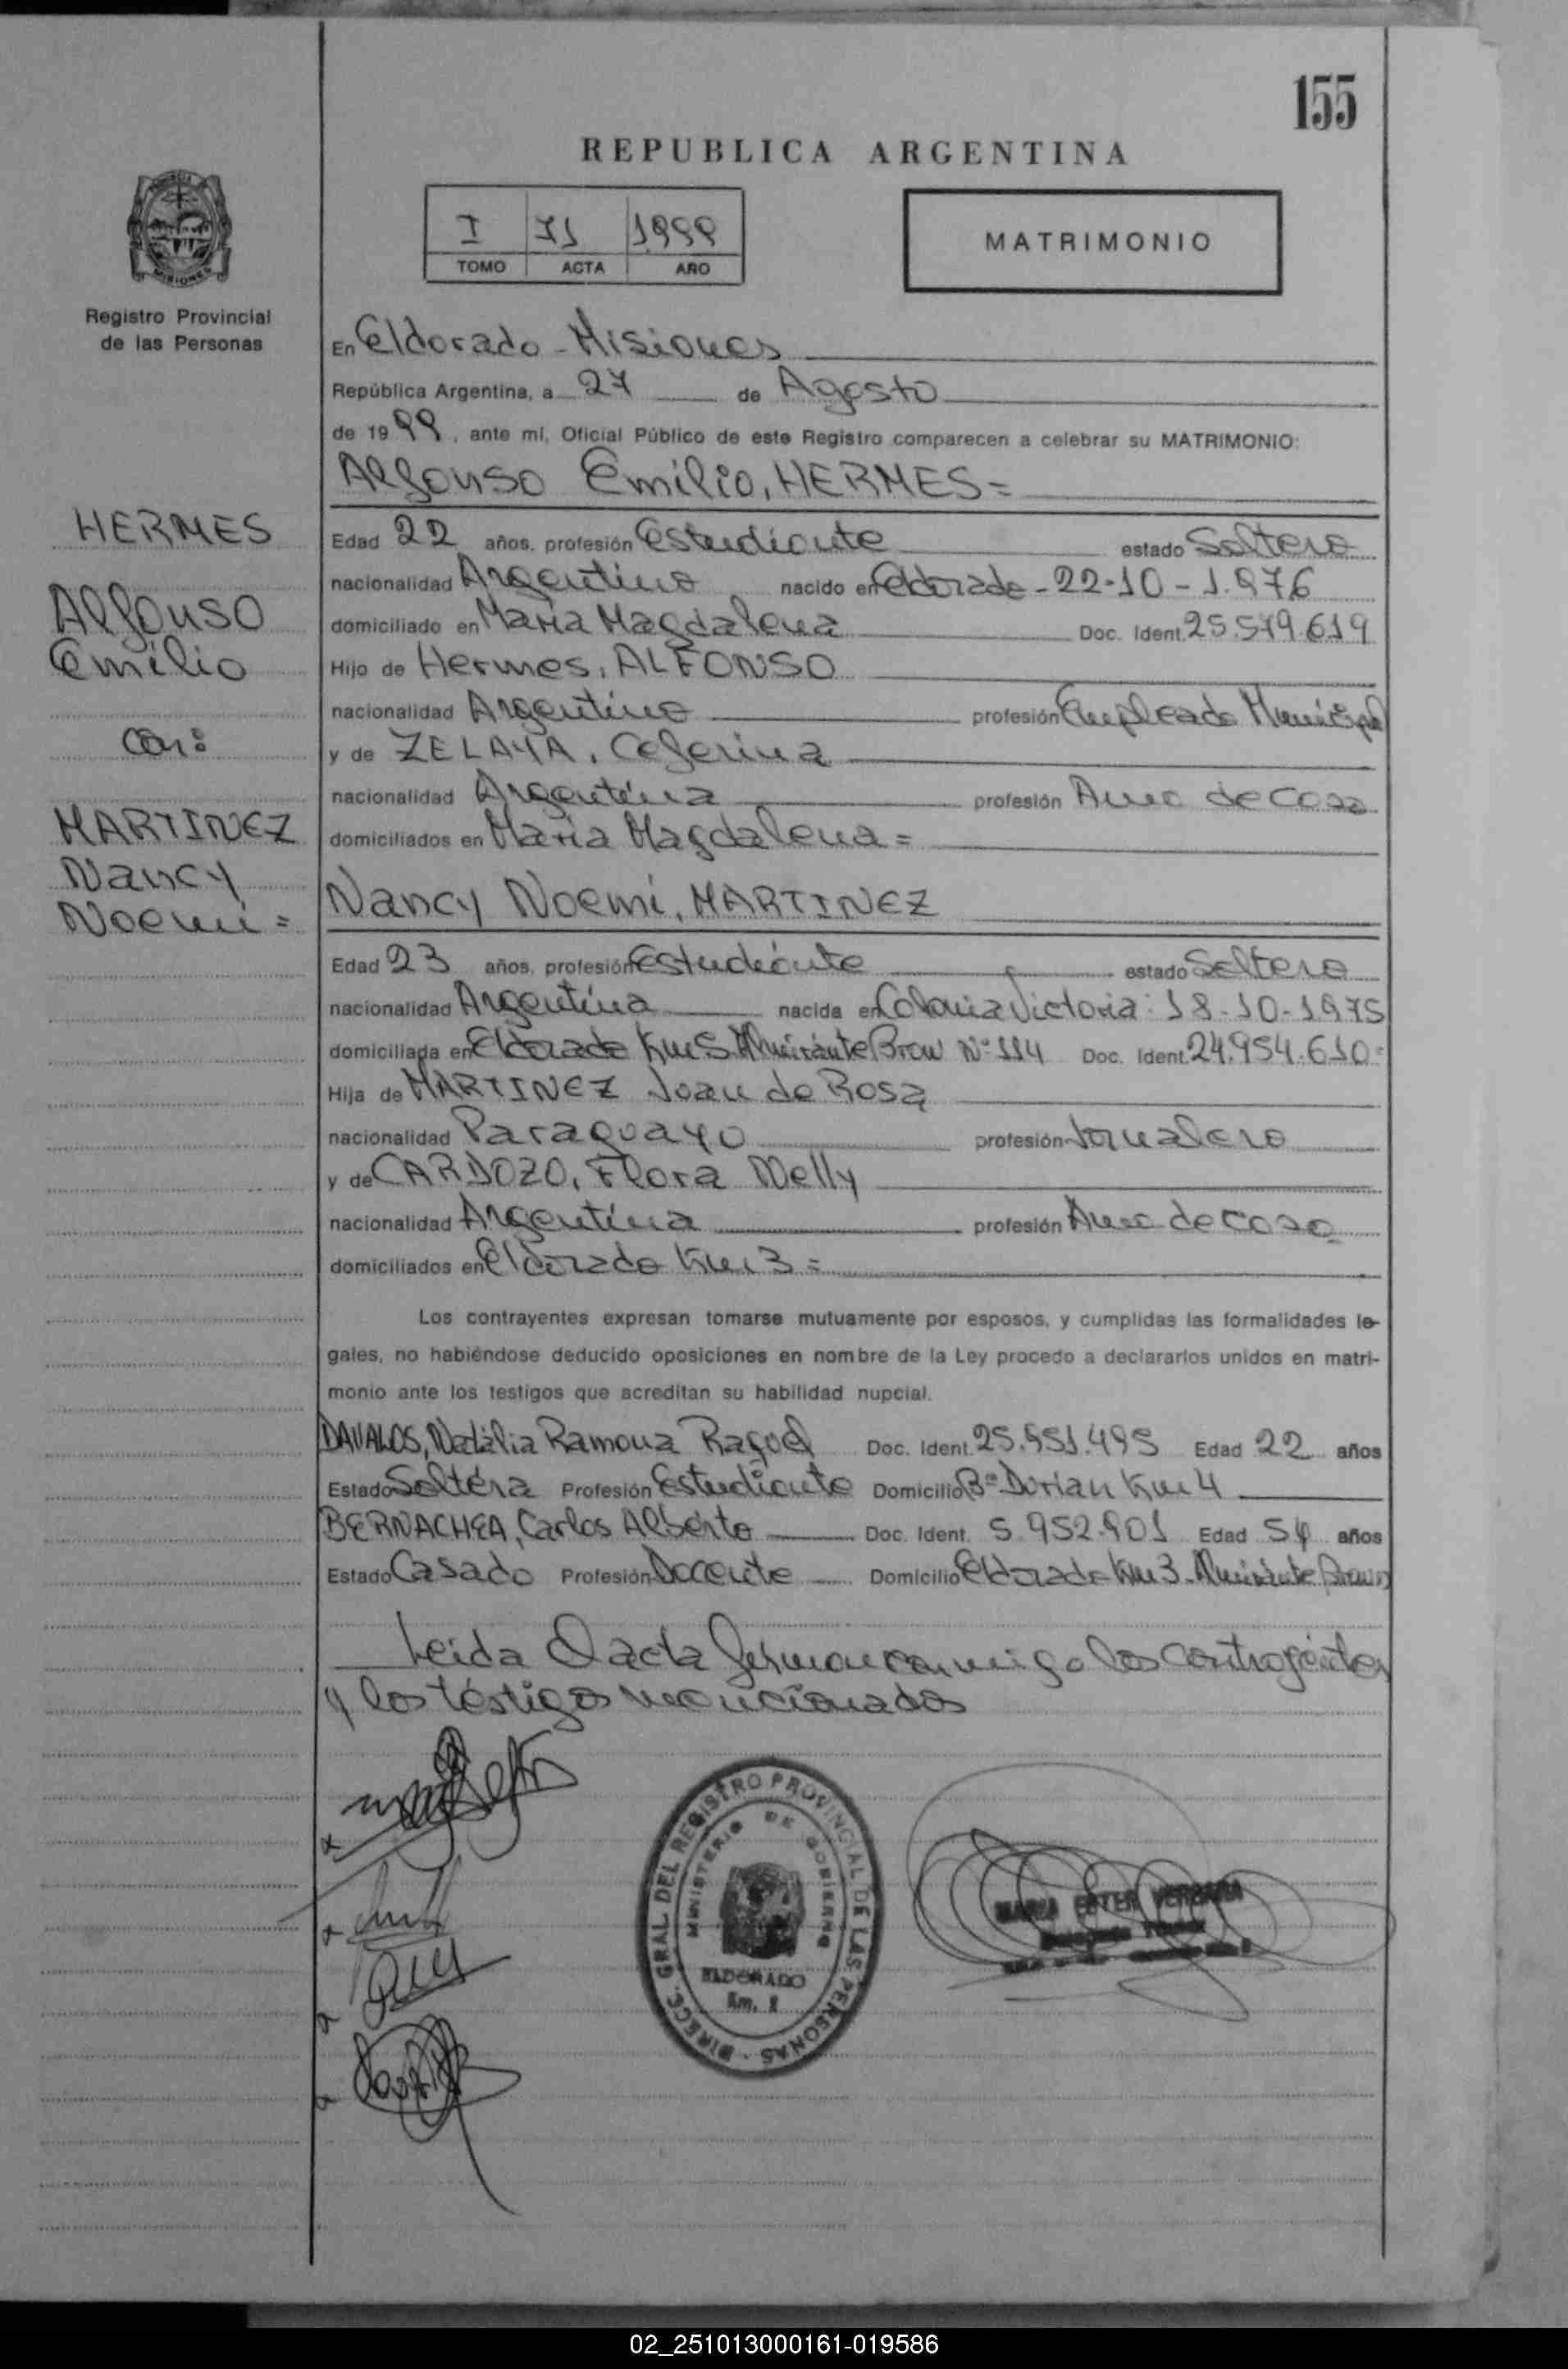 155
REPUBLICA ARGENTINA
I 71 1999
TOMO ACTA AÑO
MATRIMONIO
MISIONES
Registro Provincial
de las Personas
En Eldorado - Misiones
República Argentina, a 27 de Agosto
de 1999, ante mí, Oficial Público de este Registro comparecen a celebrar su MATRIMONIO:
Alfonso Emilio, HERMES=
HERMES
Alfonso
Emilio
con:
MARTINEZ
Nancy
Noemi =
Edad 22 años, profesión Estudiante estado Soltero
nacionalidad Argentino nacido en Eldorado - 22-10-1.976
domiciliado en Maria Magdalena Doc. Ident. 25.549.619
Hijo de Hermes, ALFONSO
nacionalidad Argentino profesión Empleado Municipal
y de ZELAYA, Ceferina
nacionalidad Argentina profesión Ama de casa
domiciliados en Maria Magdalena =
Nancy Noemi, MARTINEZ
Edad 23 años, profesión Estudiante estado Soltera
nacionalidad Argentina nacida en Colonia Victoria: 18-10-1975
domiciliada en Eldorado Km 5 Almirante Brow Nº 114 Doc. Ident. 24.954.610=
Hija de MARTINEZ Joan de Rosa
nacionalidad Paraguayo profesión Jornalero
y de CARDOZO, Flora Nelly
nacionalidad Argentina profesión Ama de casa
domiciliados en Eldorado Km 3 =
Los contrayentes expresan tomarse mutuamente por esposos, y cumplidas las formalidades le-
gales, no habiéndose deducido oposiciones en nombre de la Ley procedo a declararlos unidos en matri-
monio ante los testigos que acreditan su habilidad nupcial.
DAVALOS, Natalia Ramona Raquel Doc. Ident. 25.551.495 Edad 22 años
Estado Soltera Profesión Estudiante Domicilio Bº Dorian Km 4
BERNACHEA, Carlos Alberto Doc. Ident. 5.952.901 Edad 54 años
Estado Casado Profesión Docente Domicilio Eldorado Km 3 Almirante Brown
Leida el acta firman conmigo los contrayentes
y los testigos mencionados
DIRECC. GRAL. DEL REGISTRO PROVINCIAL DE LAS PERSONAS
MINISTERIO DE GOBIERNO
ELDORADO
Km.
MARIA ESTER VERGARA
02_251013000161-019586